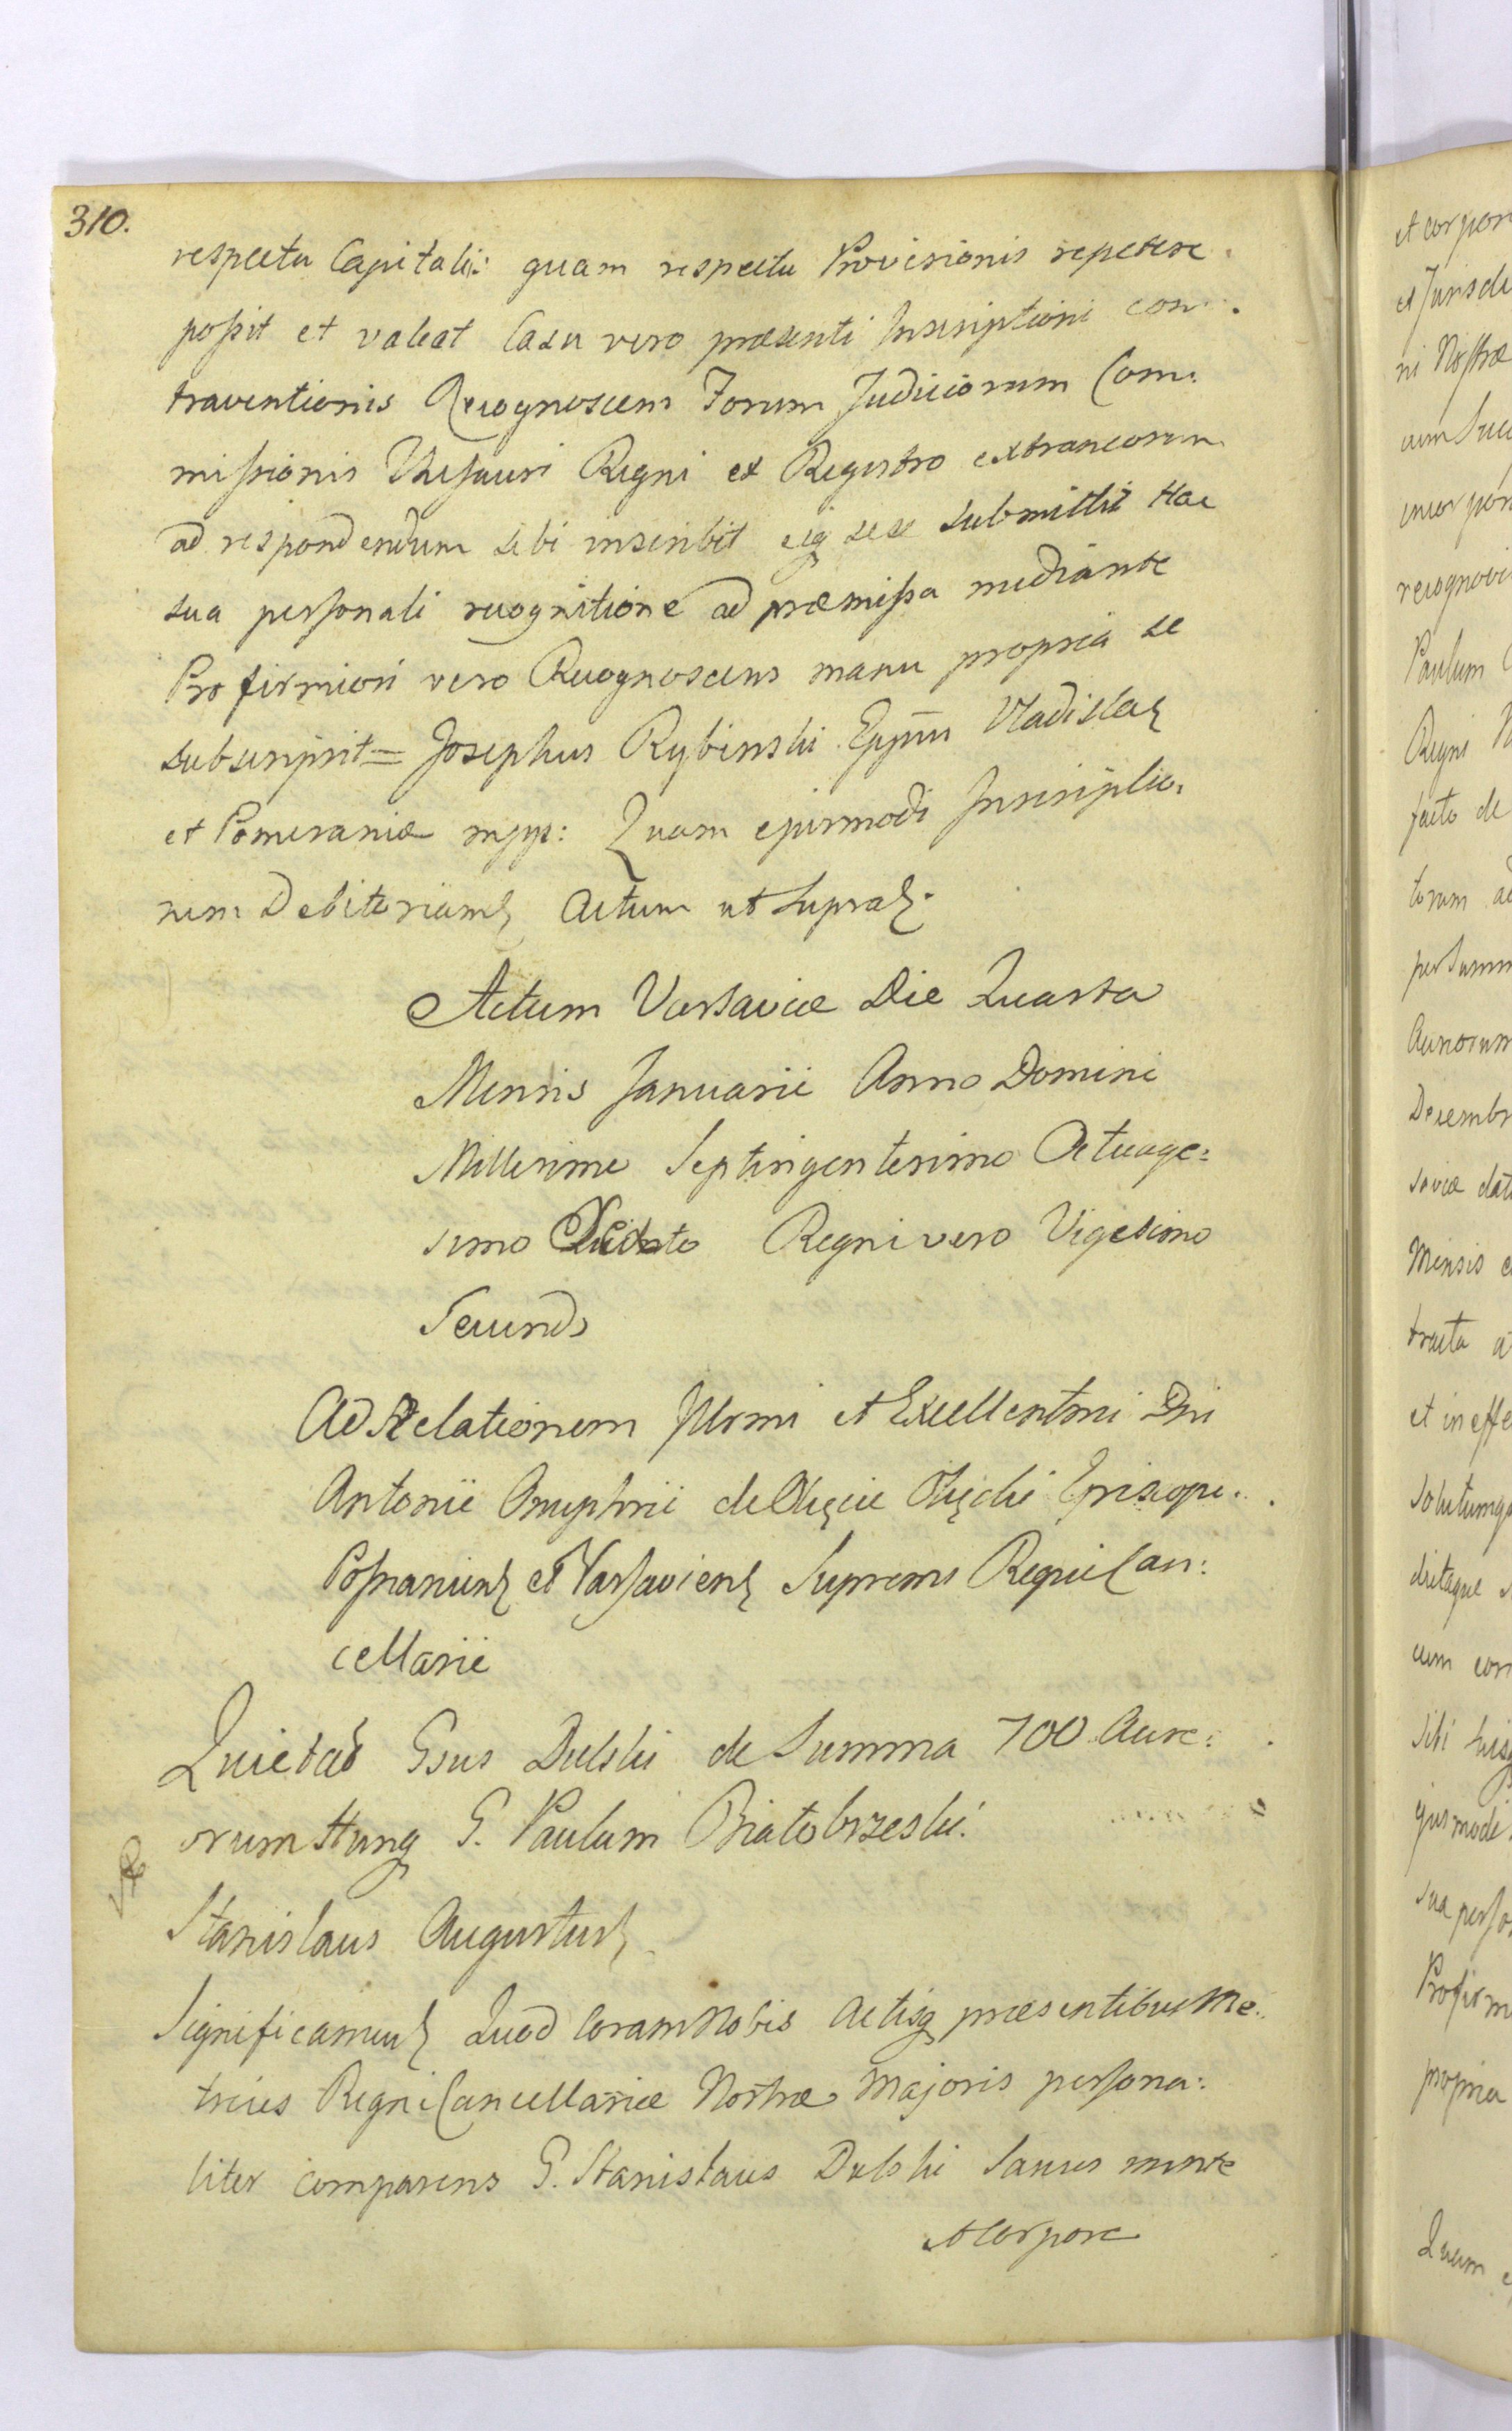 310.
respectu Capitalis: quam respectu Provisionis repetere
possit et valeat Casu vero præsenti Inscriptioni con:
traventionis Recognoscens Forum Judiciorum Com:
missionis Thesauri Regni ex Regestro extraneorum
ad respondendum sibi inscribit eiq sese submittit Hac
sua personali recognitione ad præmissa mediante
Pro firmiori vero Recognoscens manu propria se
subscripsit = Josephus Rybinski Eppūs Vladislaę
et Pomeraniæ mpp: Quam ejusmodi Inscriptio:
nem Debitoriam Actum ut supra.
Actum Varsaviæ Die Quarta
Mensis Januarii Anno Domini
Millesimo Septingentesimo Octuage:
simo Regni vero Vigesimo
Secundo
Ad Relationem Illrmi et Excellentmi Dni
Antonii Onuphrii de Okęcie Okęcki Episcopi
Posnanien et Varsavien Supremi Regni Can:
cellarii
Quietat Gsus Dulski de Summa 700 Aure:
orum Hung G. Paulum Białobrzeski.
Stanislaus Augustus
Significamus Quod Coram Nobis Actisq præsentibus Me:
trices Regni Cancellariæ Nostræ Majoris persona:
liter comparens G. Stanislaus Dulski Sanus mente
et Corpore
et corpor
et Jurisdi
ni Nostræ
cum Succ
incorpor
recognovi
Paulum
Regni
facto de
torum ad
per Summ
Aureorum
Decembr
saviæ dat
Mensis
tracta
et in effe
solutumq
ditaque
cum con
sibi
ejusmodi
sua perso
Pro firm
propria
Quam